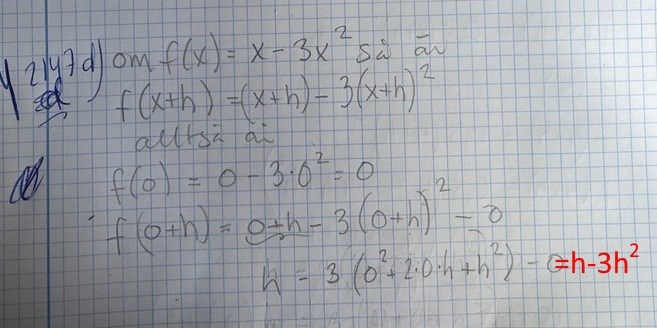 2147d) om f(x) = x - 3x² så är
f(x+h) = (x+h) - 3(x+h)²
alltså är
f(0) = 0 - 3·0² = 0
f(0+h) = 0+h - 3(0+h)² - 0
h = 3(0²+2·0·h+h²) - 0 =h-3h²